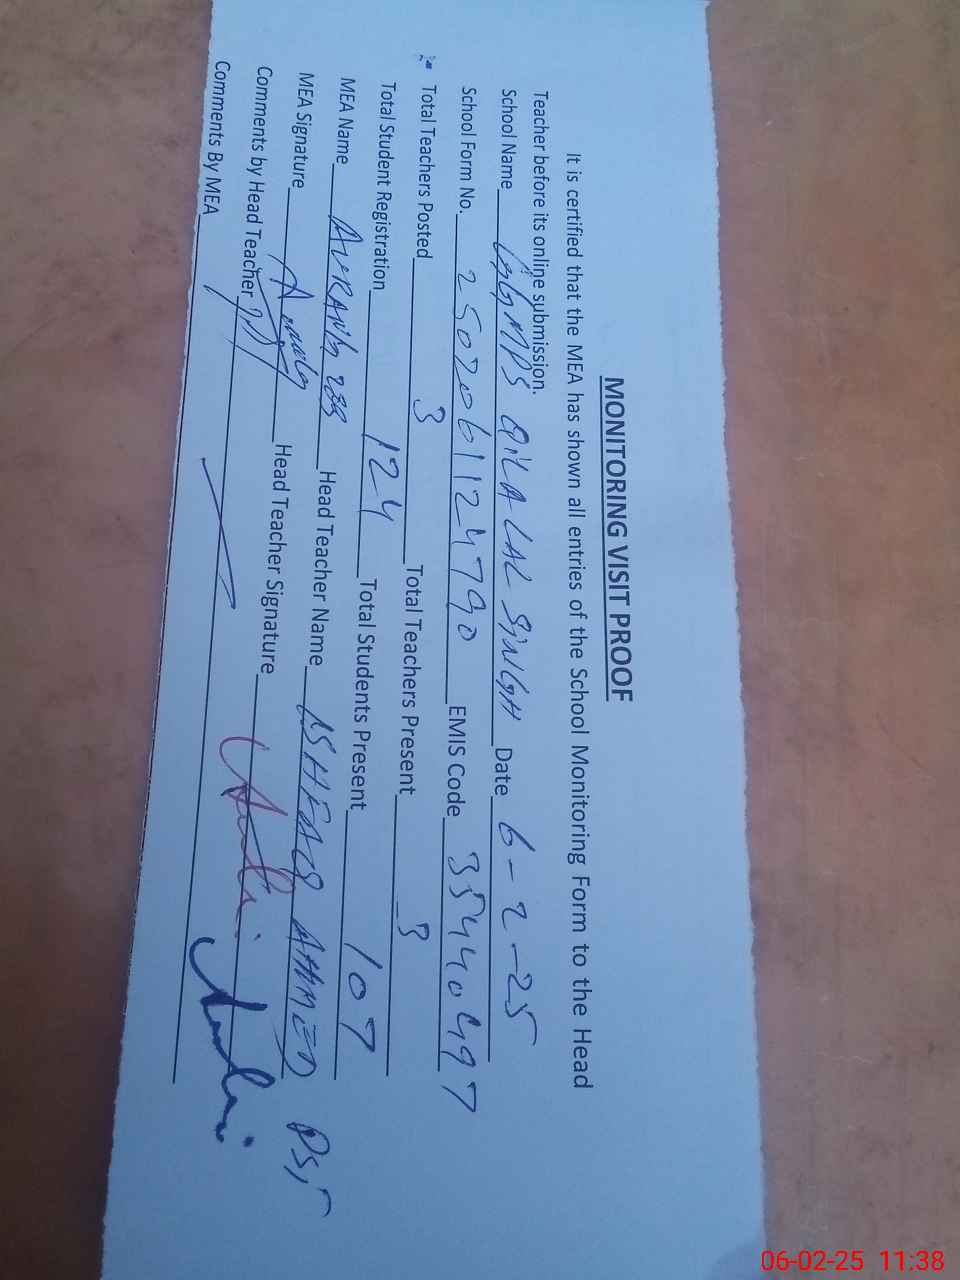 MONITORING VISIT PROOF
It is certified that the MEA has shown all entries of the School Monitoring Form to the Head
Teacher before its online submission.
School Name GGMPS QILA LAL SINGH Date 6-2-25
School Form No. 2502061124790 EMIS Code 35440497
Total Teachers Posted 3 Total Teachers Present 3
Total Student Registration 124 Total Students Present 107
MEA Name AURANG ZEB Head Teacher Name ASHFAQ AHMED
MEA Signature Head Teacher Signature
Comments by Head Teacher
Comments By MEA
06-02-25 11:38